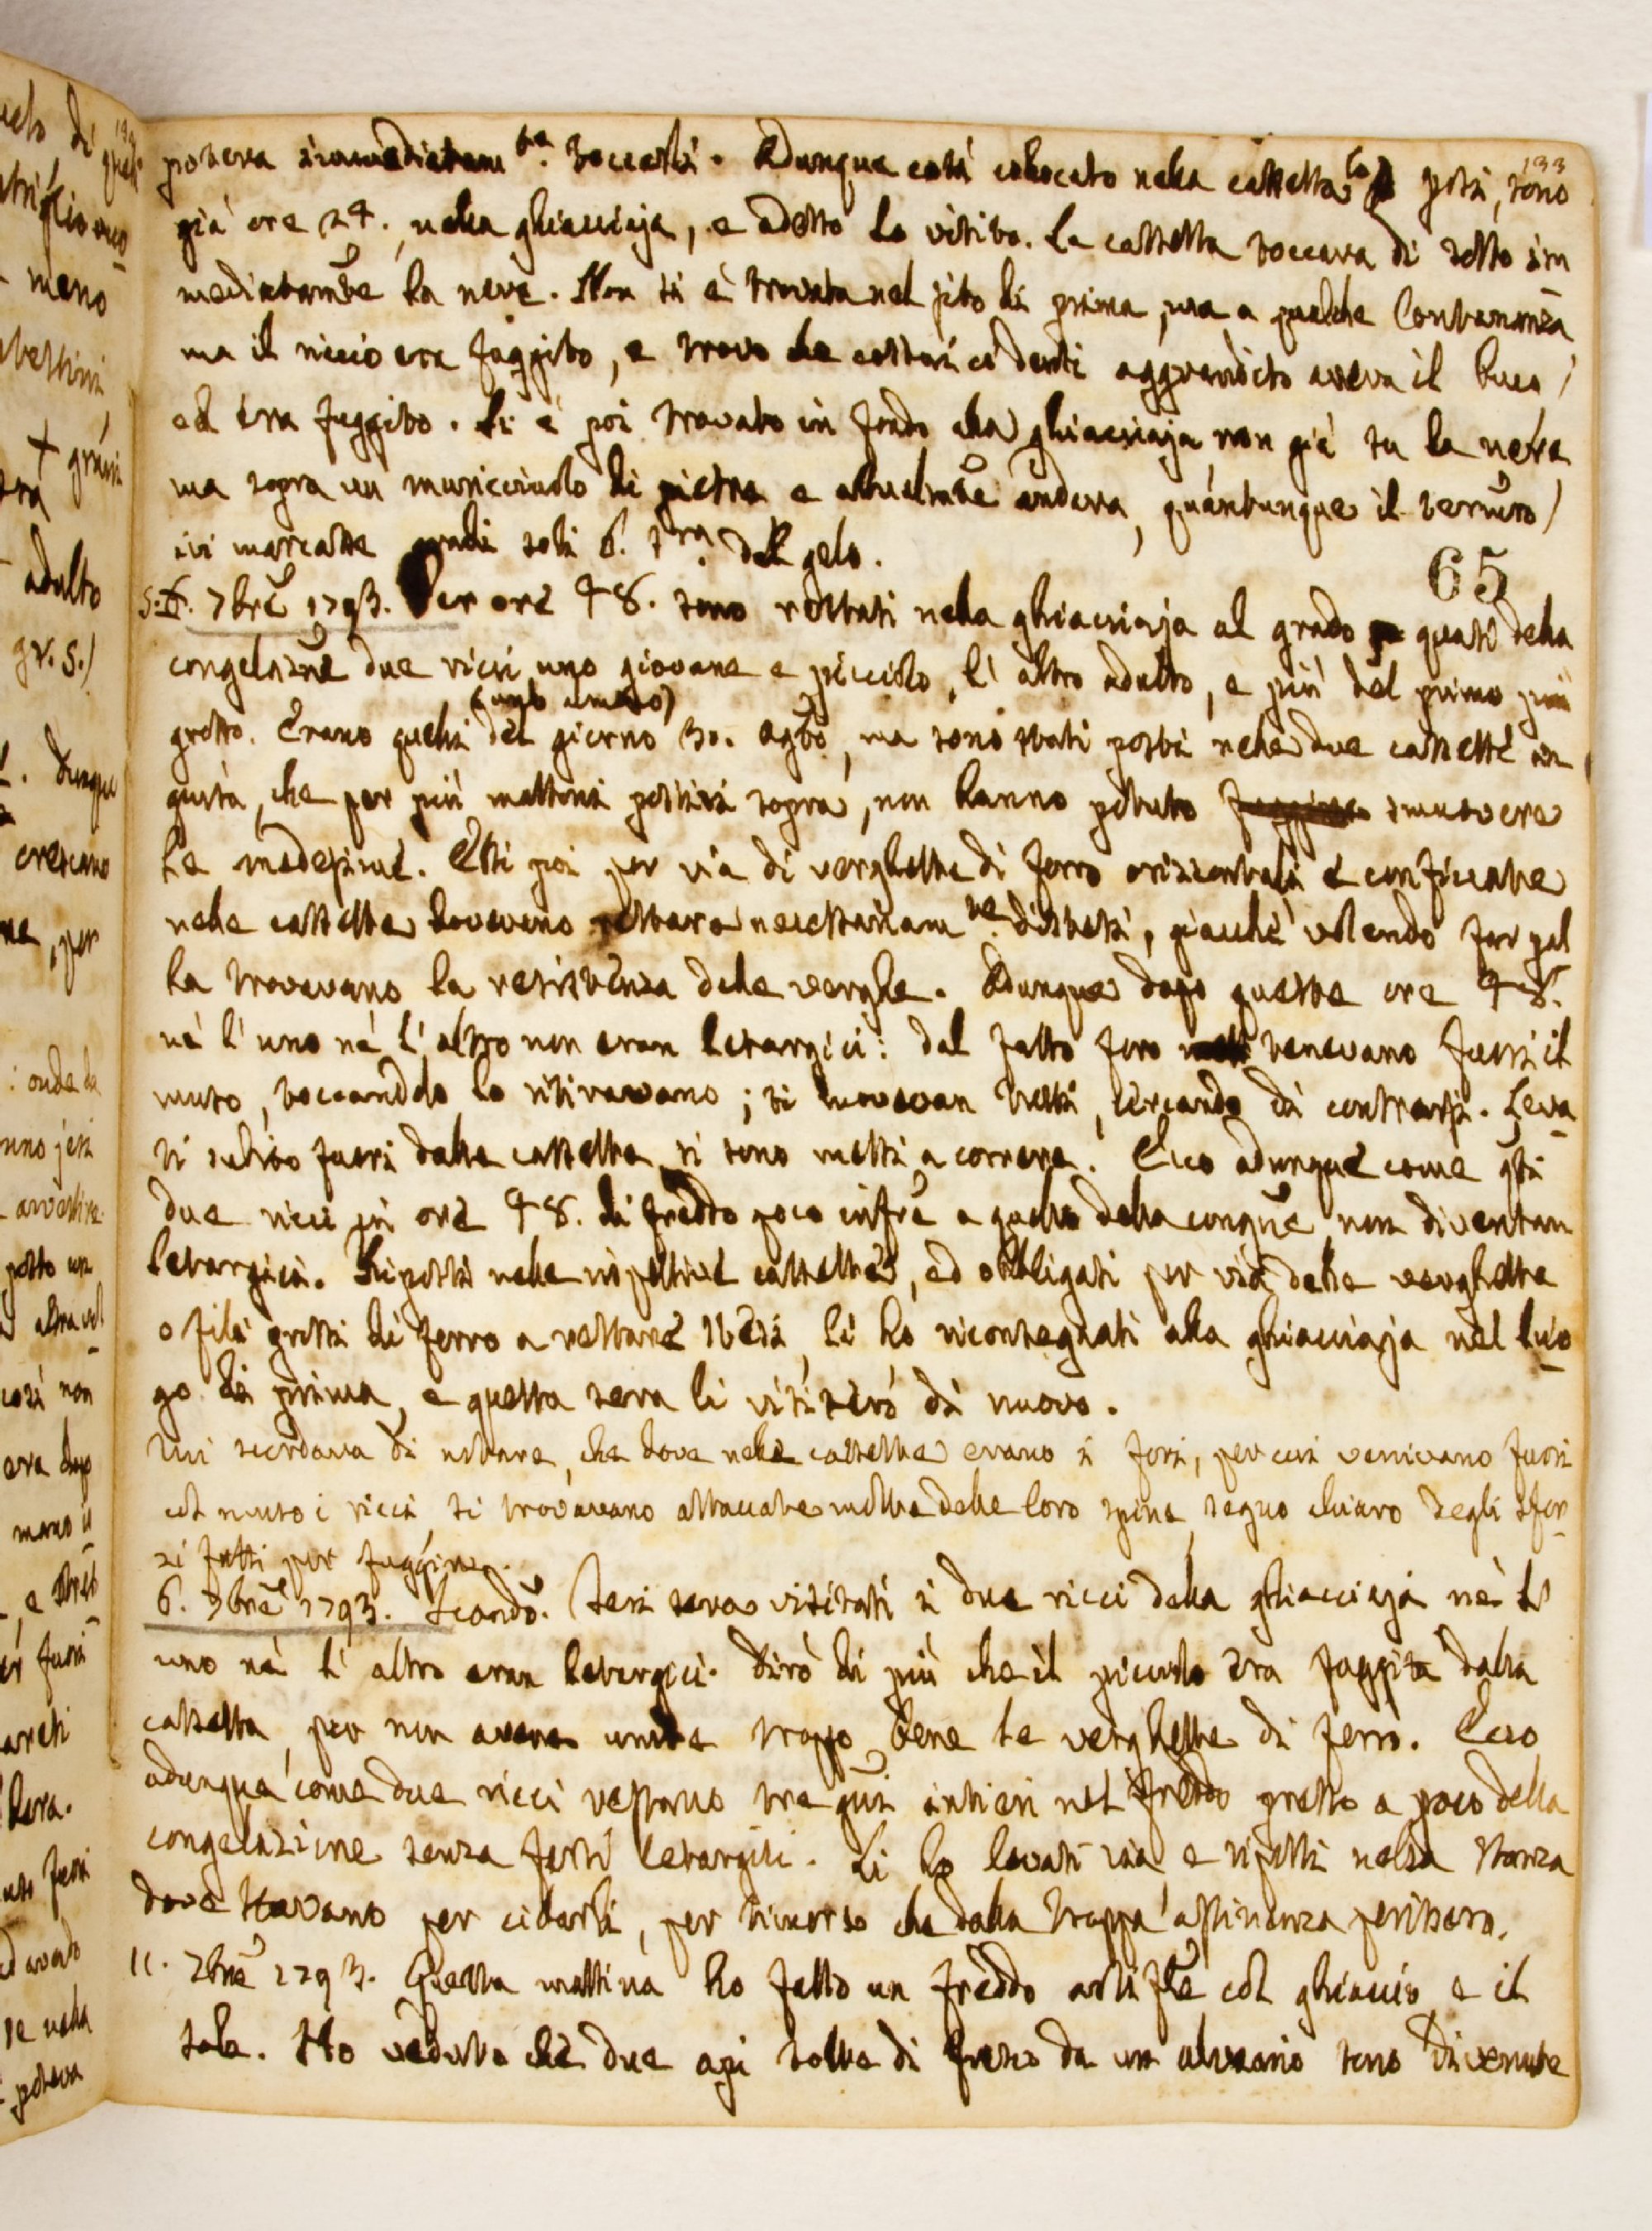 133
poteva immediatam.te toccarsi. Adunque così collocato nella cassetta lo posi, sono
già ore 24., nella ghiacciaja, e adesso lo visito. La cassetta toccava di sotto im
mediatam̃te la neve. Non si è trovata nel sito di prima, ma a qualche lontananza
ma il riccio era fuggito, e trovo che cassetta co' denti aggrandito aveva il buco
ed era fuggito. Si è poi trovato in fondo alla ghiacciaja non già su la neve
ma sopra un muricciuolo di pietra e attualm̃te andava, quantunque il termro
ivi marcasse gradi soli 6. sra. del gelo.
65
5. 7bre 1793. Per ore 48. sono restati nella ghiacciaja al grado quasi della
congelazne due ricci uno giovane e picciolo, l' altro adulto, e più del primo più
(uno almeno)
grosso. Erano quelli del giorno 30. agto, ma sono stati posti nelle due cassette in
guisa, che per più mattoni postivi sopra, non hanno potuto fuggire smuovere
le medesime. Essi poi per via di verghette di ferro orizzontali e conficcate
nelle cassette dovevano restare necessariam.te distesi, giacchè volendo far gal
la trovavano la resistenza delle verghe. Adunque dopo queste ore 48.
nè l' uno nè l' altro non eran letargici: dal fatto foro tenevano fuori il
muso, toccandolo lo ritiravano; si movevan tutti, cercando di contrarsi. Leva
ti subito fuori dalla cassetta si sono messi a correre. Ecco adunque come gli
due ricci in ore 48. di freddo poco infre a quello della congne non diventan
letargici. Riposti nelle rispettive cassette, ed obbligati per via delle verghette
o fili grossi di ferro a restare stesi, li ho riconsegnati alla ghiacciaja nel luo
go di prima, e questa sera li visiterò di nuovo.
Mi scordava di notare, che dove nelle cassette erano i fori, per cui venivano fuori
col muso i ricci, si trovavano attaccate molte delle loro spine, segno chiaro degli sfor
zi fatti per fuggire.
6. 7bre 1793. Scando. Jeri sera visitati i due ricci della ghiacciaja nè l'
uno nè l' altro eran letargici. Dirò di più che il piccolo era fuggito dalla
cassetta, per non avere unite troppo bene le verghette di ferro. Ecco
adunque come due ricci restano tre gni intieri nel freddo presso a poco della
congelazione senza farsi letargici. Li ho levati via, e riposti nella stanza
dove stavano per cibarsi, per timore che dalla troppa astinenza perissero.
11. 7bre 1793. Questa mattina ho fatto un freddo artifle col ghiaccio e il
sale. Ho veduto che due api tolte di fresco da un alveario sono divenute